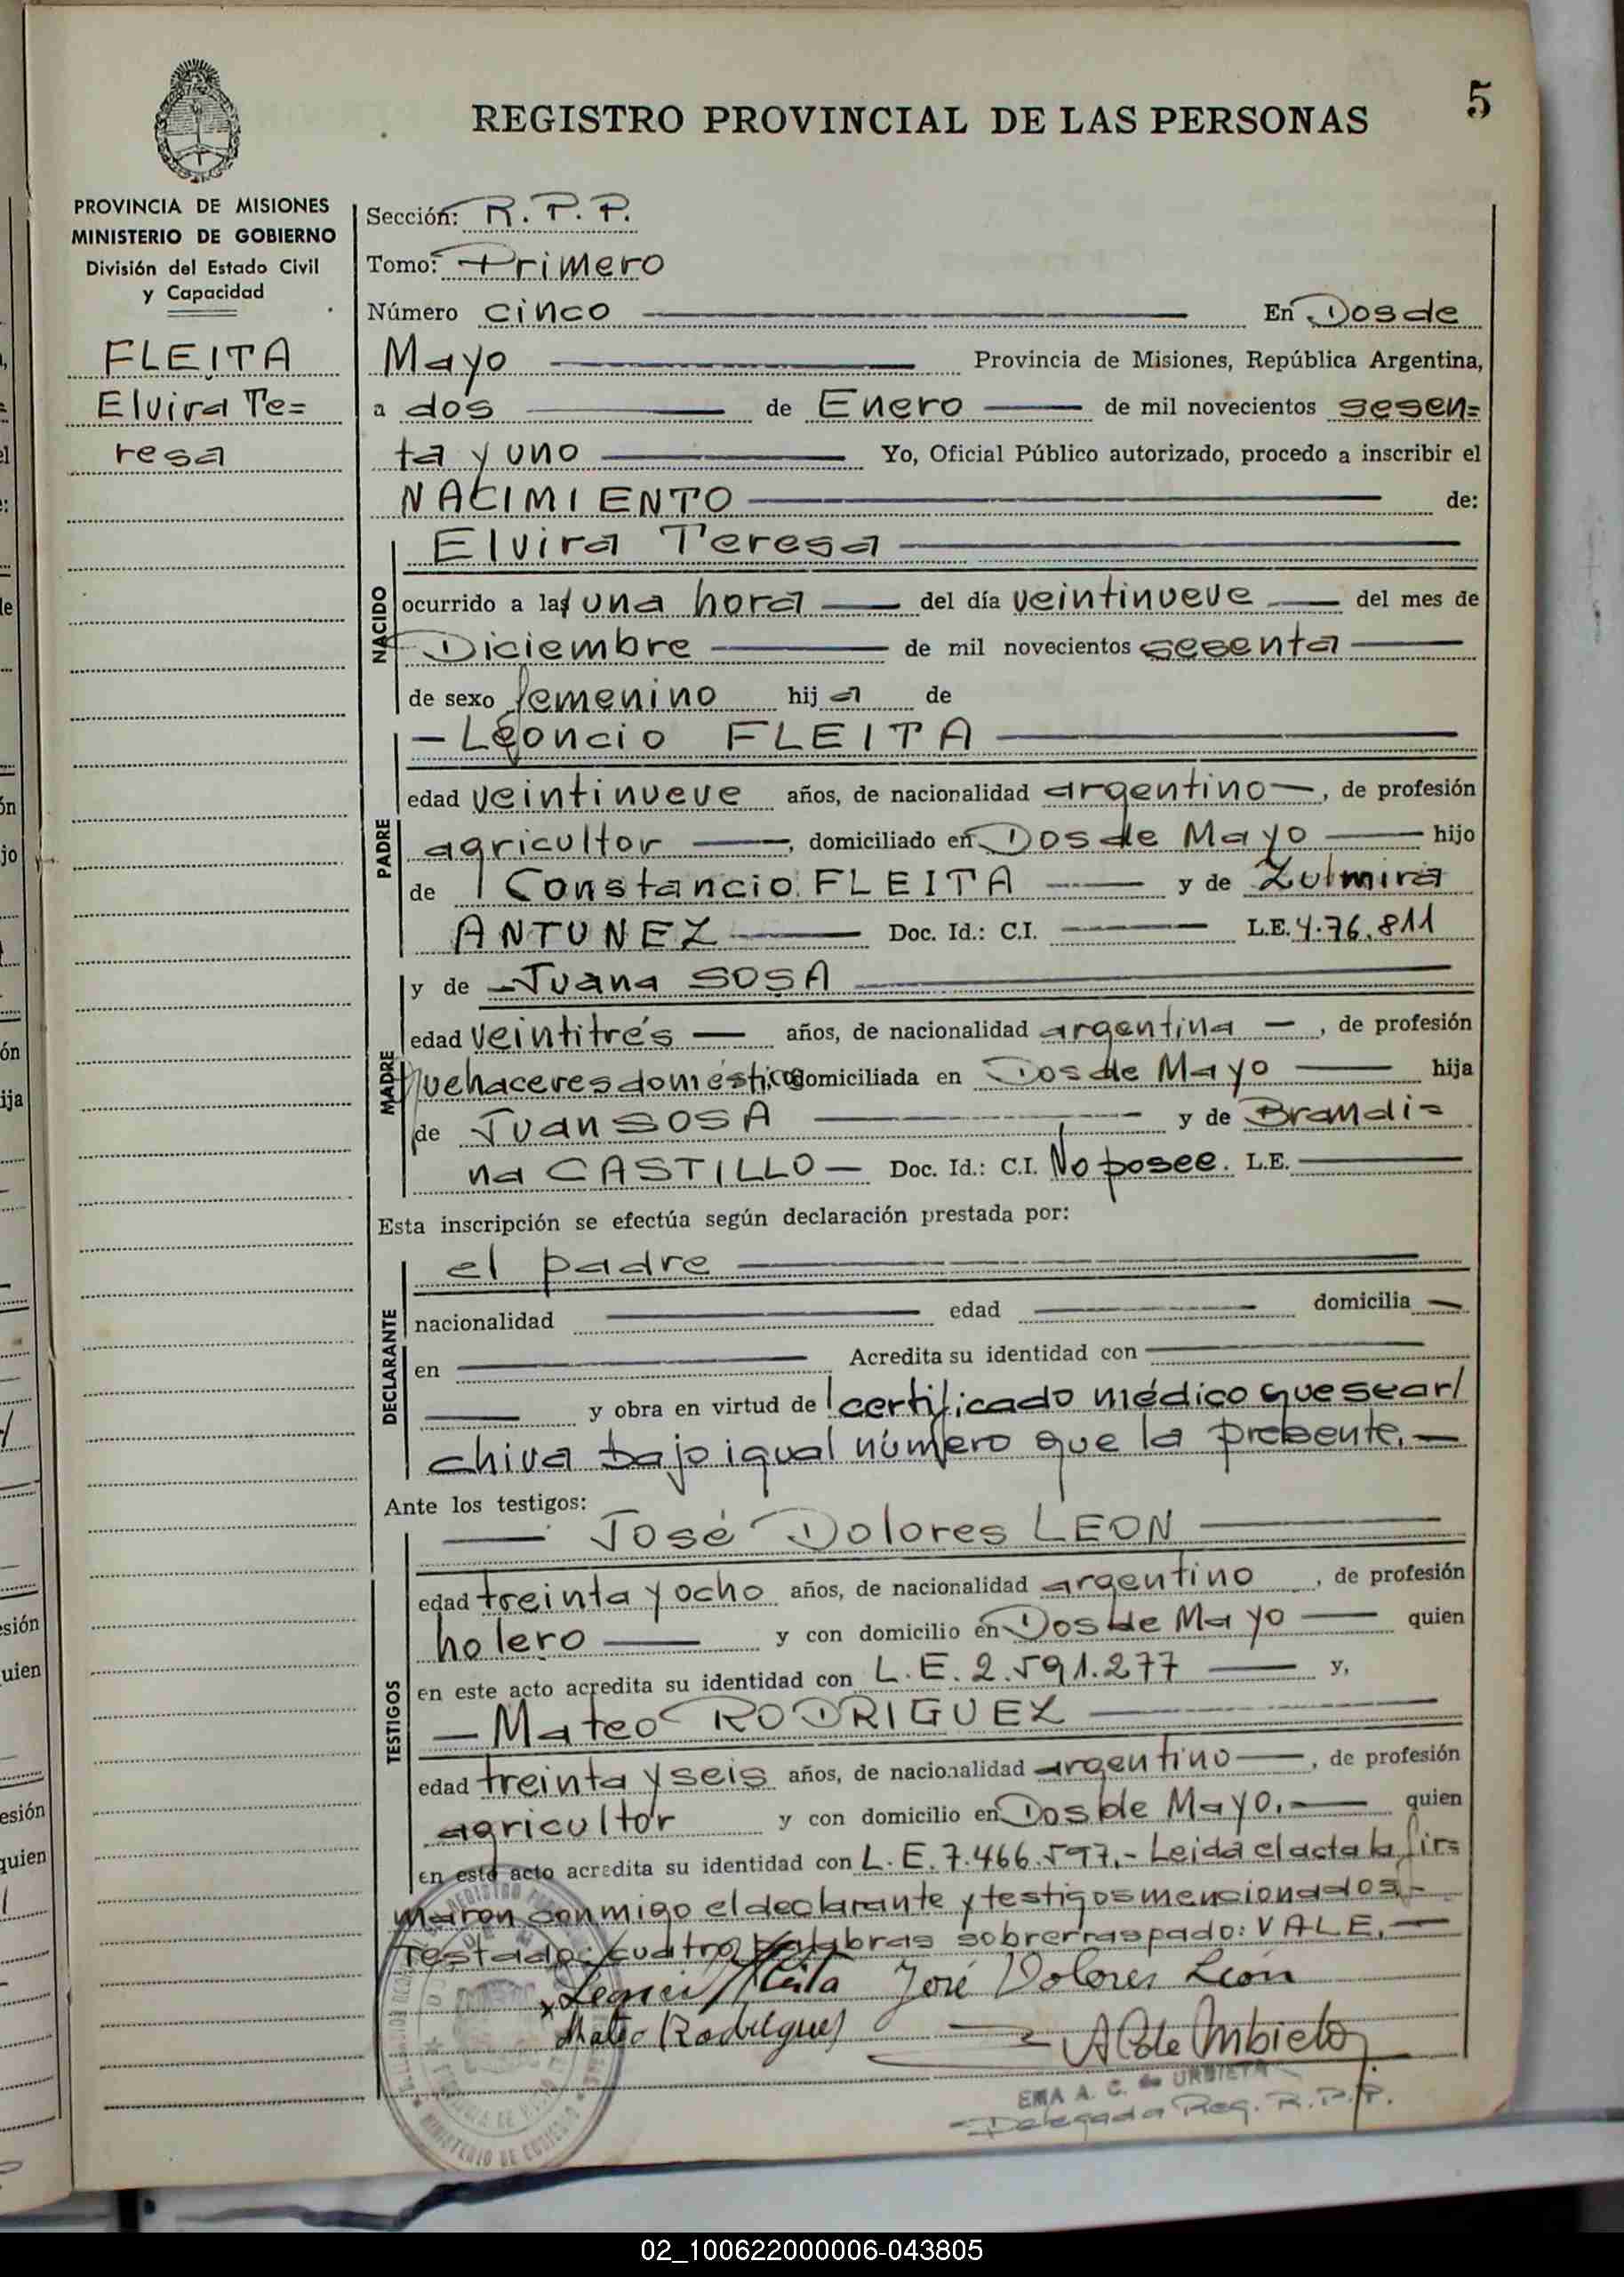 5
REGISTRO PROVINCIAL DE LAS PERSONAS
PROVINCIA DE MISIONES
MINISTERIO DE GOBIERNO
División del Estado Civil
y Capacidad
FLEITA
Elvira Te=
resa
Sección: R. P. P.
Tomo: Primero
Número cinco En Dos de
Mayo Provincia de Misiones, República Argentina,
a dos de Enero de mil novecientos sesen=
ta y uno Yo, Oficial Público autorizado, procedo a inscribir el
NACIMIENTO de:
NACIDO
Elvira Teresa
ocurrido a las una hora del día veintinueve del mes de
Diciembre de mil novecientos sesenta
de sexo femenino hij a de
PADRE
Leoncio FLEITA
edad veintinueve años, de nacionalidad argentino, de profesión
agricultor, domiciliado en Dos de Mayo hijo
de Constancio FLEITA y de Zulmira
ANTUNEZ Doc. Id.: C.I. L.E. 4.76.811
MADRE
y de Juana SOSA
edad veintitrés años, de nacionalidad argentina, de profesión
quehaceres domésticos domiciliada en Dos de Mayo hija
de Juan SOSA y de Brandi=
na CASTILLO Doc. Id.: C.I. No posee. L.E.
Esta inscripción se efectúa según declaración prestada por:
DECLARANTE
el padre
nacionalidad edad domicilia
en Acredita su identidad con
y obra en virtud de certificado médico que se ar/
chiva bajo igual número que la presente.
Ante los testigos:
TESTIGOS
José Dolores LEON
edad treinta y ocho años, de nacionalidad argentino, de profesión
holero y con domicilio en Dos de Mayo quien
en este acto acredita su identidad con L. E. 2.591.277 y,
Mateo RODRIGUEZ
edad treinta y seis años, de nacionalidad argentino, de profesión
agricultor y con domicilio en Dos de Mayo. quien
en este acto acredita su identidad con L. E. 7.466.597.- Leida el acta la fir=
maron conmigo el declarante y testigos mencionados.-
Testado: cuatro palabras sobrerraspado: VALE.
Leoncio Fleita José Dolores León
Mateo Rodriguez
A C de Urbieta
EMA A. C. de URBIETA
Delegada Reg. R. P. P.
MINISTERIO DE
02_100622000006-043805